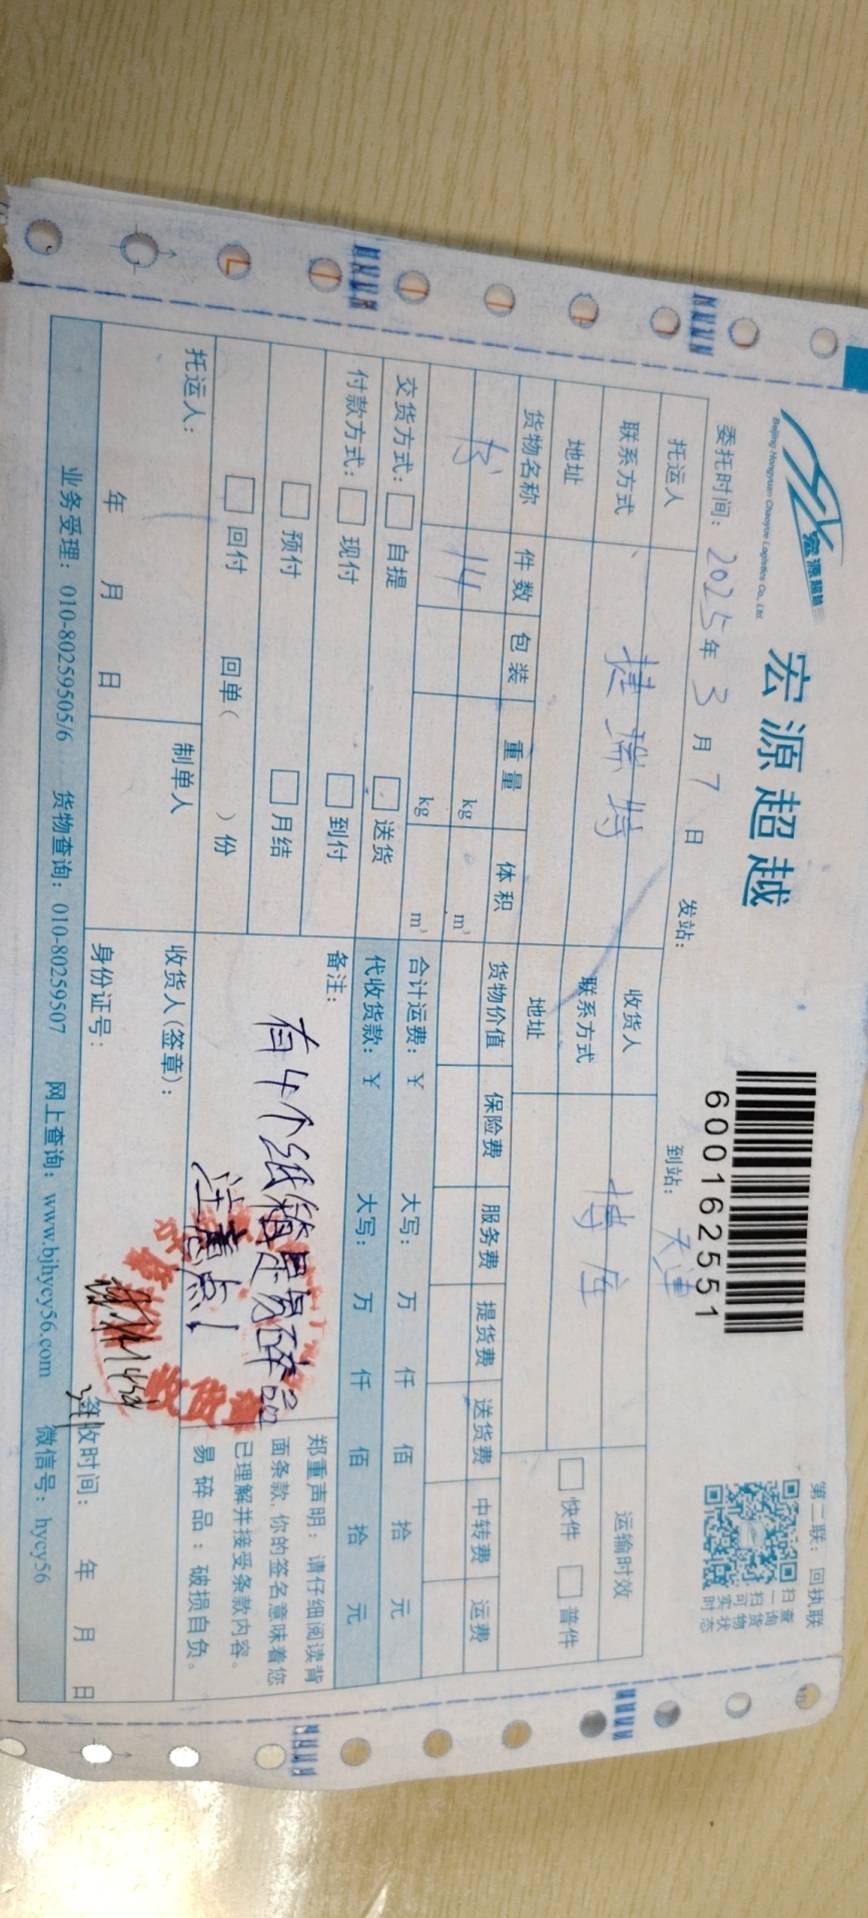 宏源超越
Beijing Hongyuan Chaoyue Logistics Co., Ltd.
宏源超越
600162551
第二联：回执联
扫一扫可实时
查询货物状态
委托时间：2025年3月7日 发站： 到站：天津
托运人 捷瑞特 收货人 博库 运输时效
联系方式 联系方式 快件 普件
地址 地址
货物名称 件数 包装 重量 体积 货物价值 保险费 服务费 提货费 送货费 中转费 运费
书 14 kg m³
kg m³
交货方式： 自提 送货 合计运费：¥ 大写： 万 仟 佰 拾 元
付款方式： 现付 到付 代收货款：¥ 大写： 万 仟 佰 拾 元
预付 月结 备注：
回付 回单（ ）份
有4个纸箱是易碎品
注意点！
郑重声明：请仔细阅读背
面条款，你的签名意味着您
已理解并接受条款内容。
易碎品：破损自负。
托运人： 制单人 收货人（签章）：
年 月 日 身份证号： 签收时间： 年 月 日
业务受理：010-80259505/6 货物查询：010-80259507 网上查询：www.bjhycy56.com 微信号：hycy56